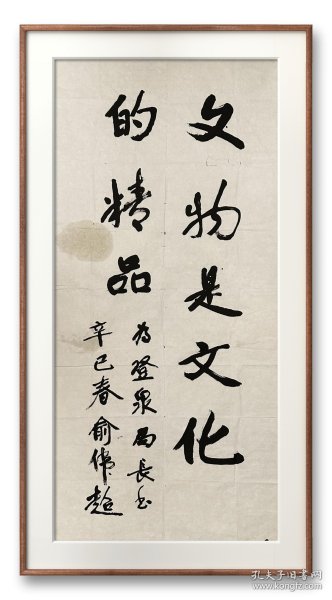 文物是文化
的精品
为登泉局長书
辛巳春俞伟超
孔夫子旧书网